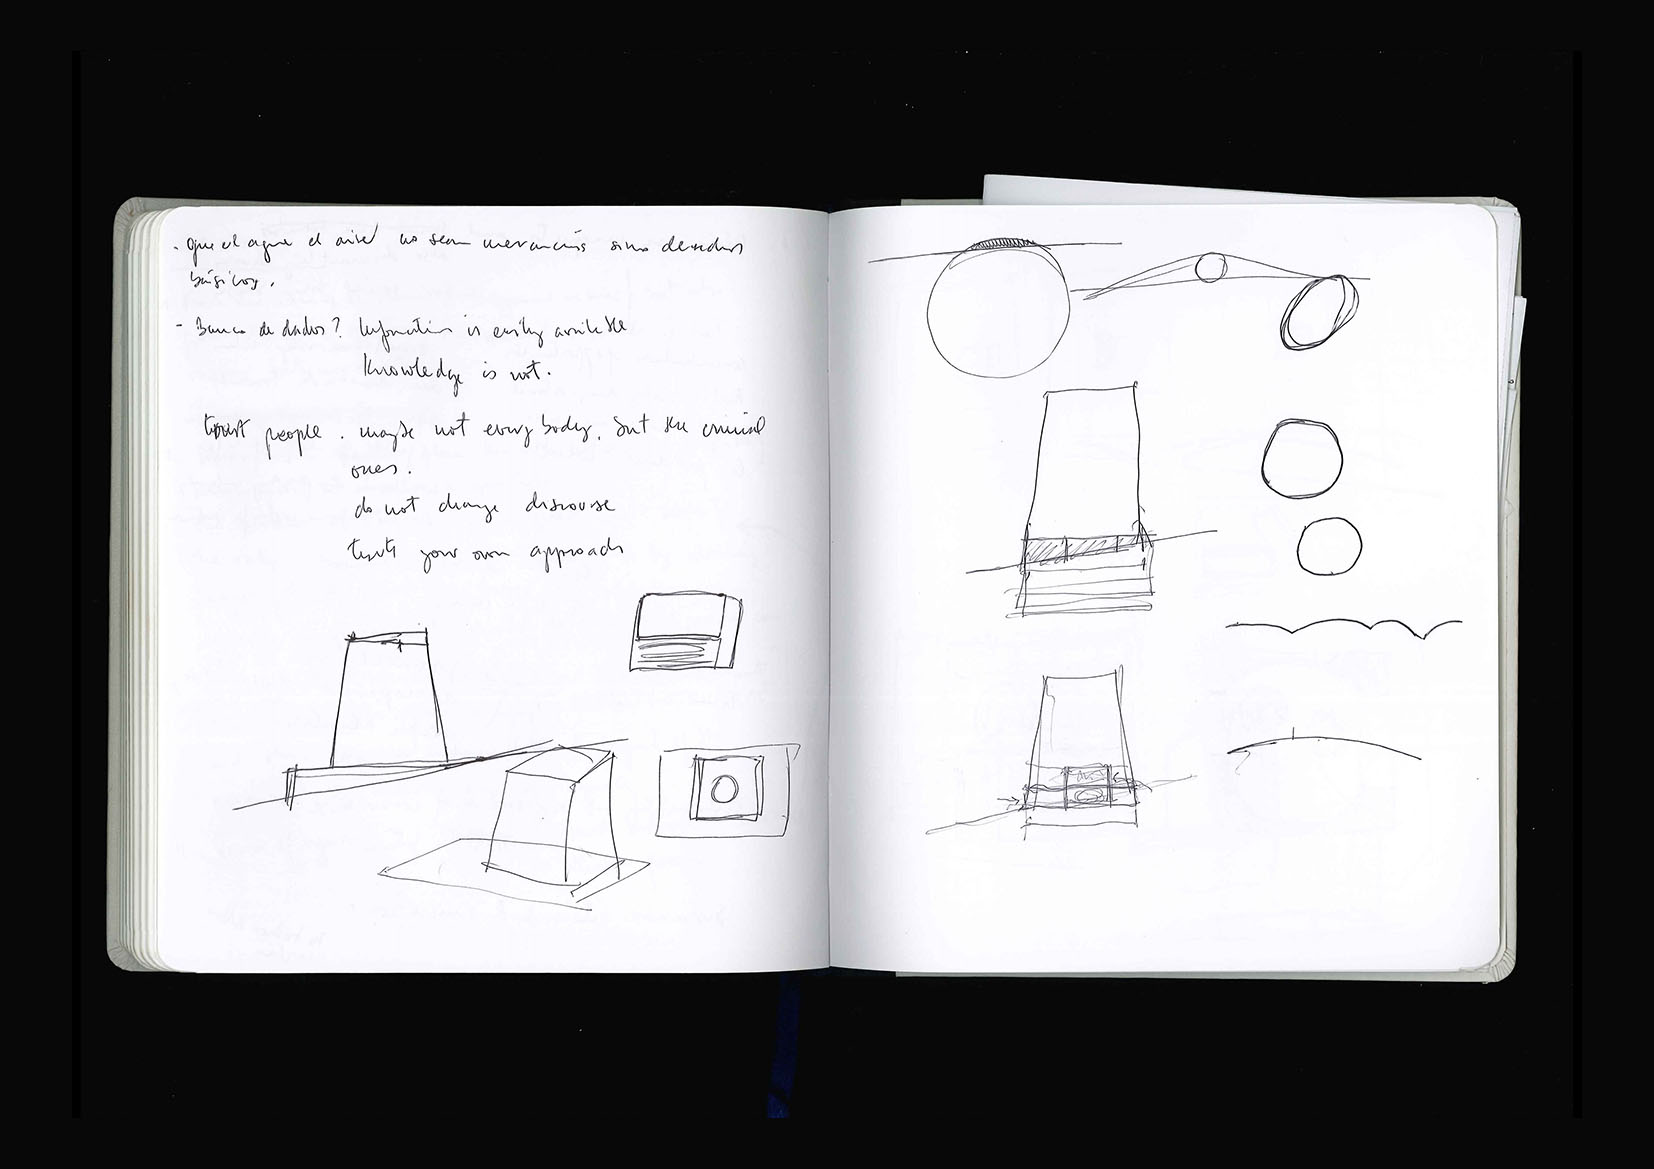 . Que el agua el aire no sean mercancías sino derechos
básicos.
- Banco de dados? Information is easily available
Knowledge is not.
trust people. maybe not everybody, but the crucial
ones.
do not change discourse
your own approach